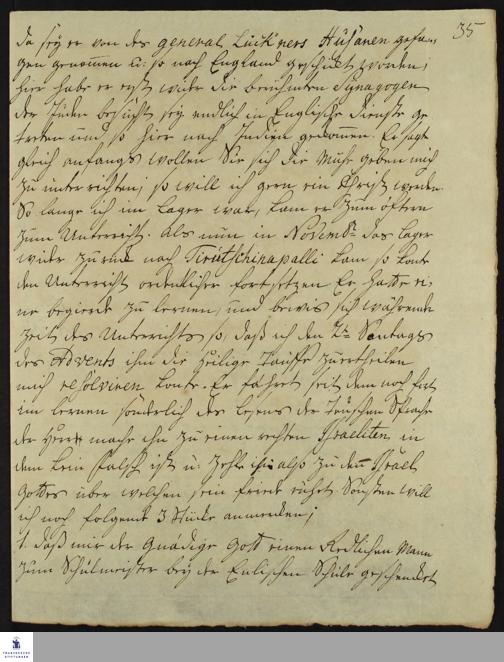 35
da seÿ er von des general Luckners Husaren gefan-
gen genommen u: so nach England geschickt worden,
hier habe er erst wider die berühmten Synagogen
der Juden besucht, seÿ endlich in Englische Dienste ge
treten und so hier nach Indien gekommen. Er sagte
gleich anfangs wollen Sie sich die Mühe geben mich
zu unterrichten, so will ich gern ein Christ werden.
So lange ich im Lager war, kam er zum öftern
zum Unterricht. Als nun in Novembr das Lager
wider zurück nach Tirutschinapalli kam so konte
den Unterricht ordentlicher fortsetzen Er hatte ei-
ne begierde zu lernen, und bewies sich während
Zeit des Unterrichts so, daß ich den 2ten Sontags
des Advents ihm die Heilige Tauffe zu ertheilen
mich resolviren konte. Er fähret seit dem noch fort
im lernen sonderlich des Lesens der Teutschen Sprache
der Herr mache ihn zu einen rechten Israeliten, in
dem kein Falsch ist u: zehle ihn also zu dem Israel
Gottes über welchen sein Friede ruhet. Sonsten will
ich noch folgende 3 Stücke anmerken;
1. daß mir der Gnädige Gott einen Redlichen Mann
zum Schulmeister beÿ der Enlischen Schule geschencket
FRANCKESCHE
STIFTUNGEN